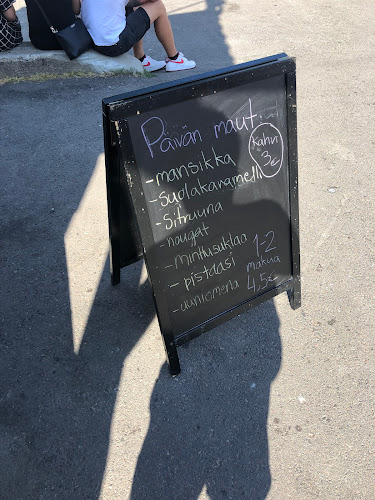 Päivän maut:
Kahvi
3€
-mansikka
-suolakaramelli
-Sitruuna
-nougat
-minttusuklaa
-pistaasi
-uuniomena
1-2
makua
4,5€